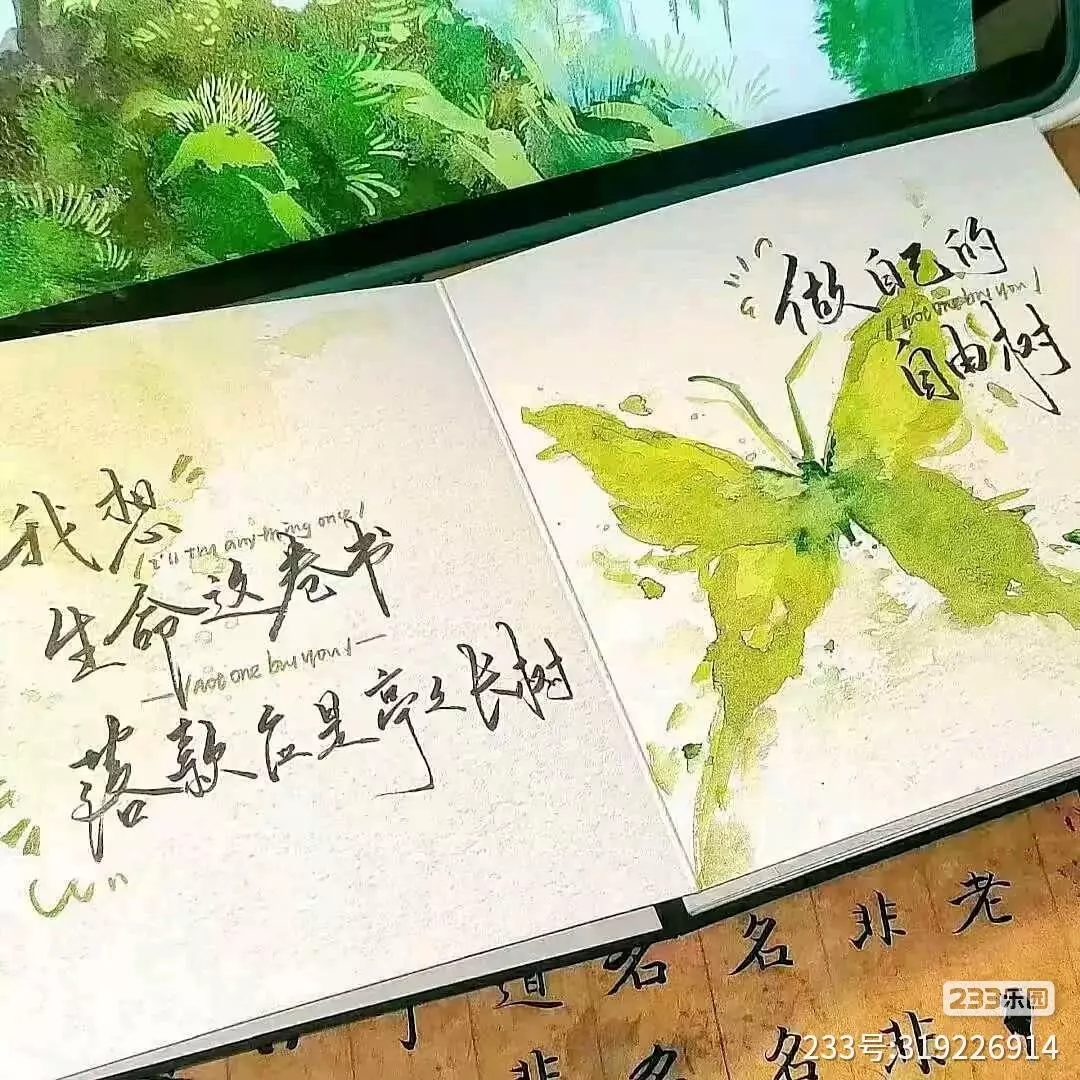 我想
I'll try anything once!
生命这卷书
落款应是亭亭长树
做自己的
自由树
老
道 名 名 非
非 名 名 非
233乐园
233号:319226914